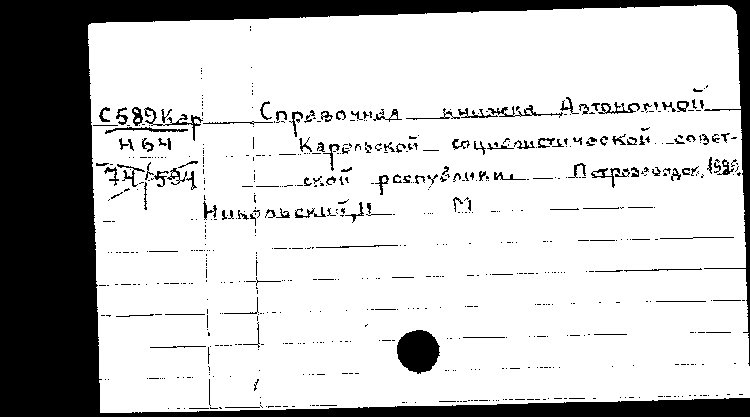 С589Кар Справочная книжка Автономной
Н64 Карельской социалистической совет-
74/594 ской республики. Петрозаводск,
Никольский, М